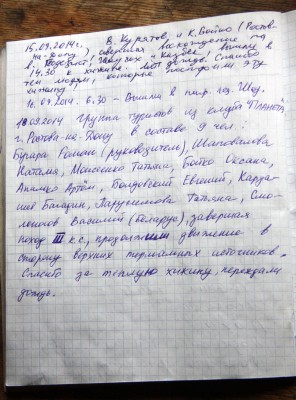 15.09.2014г. В. Курятов, и К. Бойко (Ростов-
на-Дону), совершив восхождение на
в. Казбек, вышли в
14.30 к хижине. Льёт дождь. Спасибо
тем людям, которые эту
хижину
16.09.2014 6.30 – Вышли в
18.09.2014 Группа туристов из клуба "Планета"
г. Ростова-на-Дону в составе 9 чел:
Бугара Роман (руководитель), Шаповалова
Наталья, Моисенко Татьяна, Бойко Оксана,
Артём, Болдовский Евгений, Карда-
Парусимова Татьяна, Смо-
ленцов Василий (Беларусь), завершая
поход III к.с., продолжили движение в
сторону верхних термальных источников.
Спасибо за тёплую хижину, переждали
дождь.